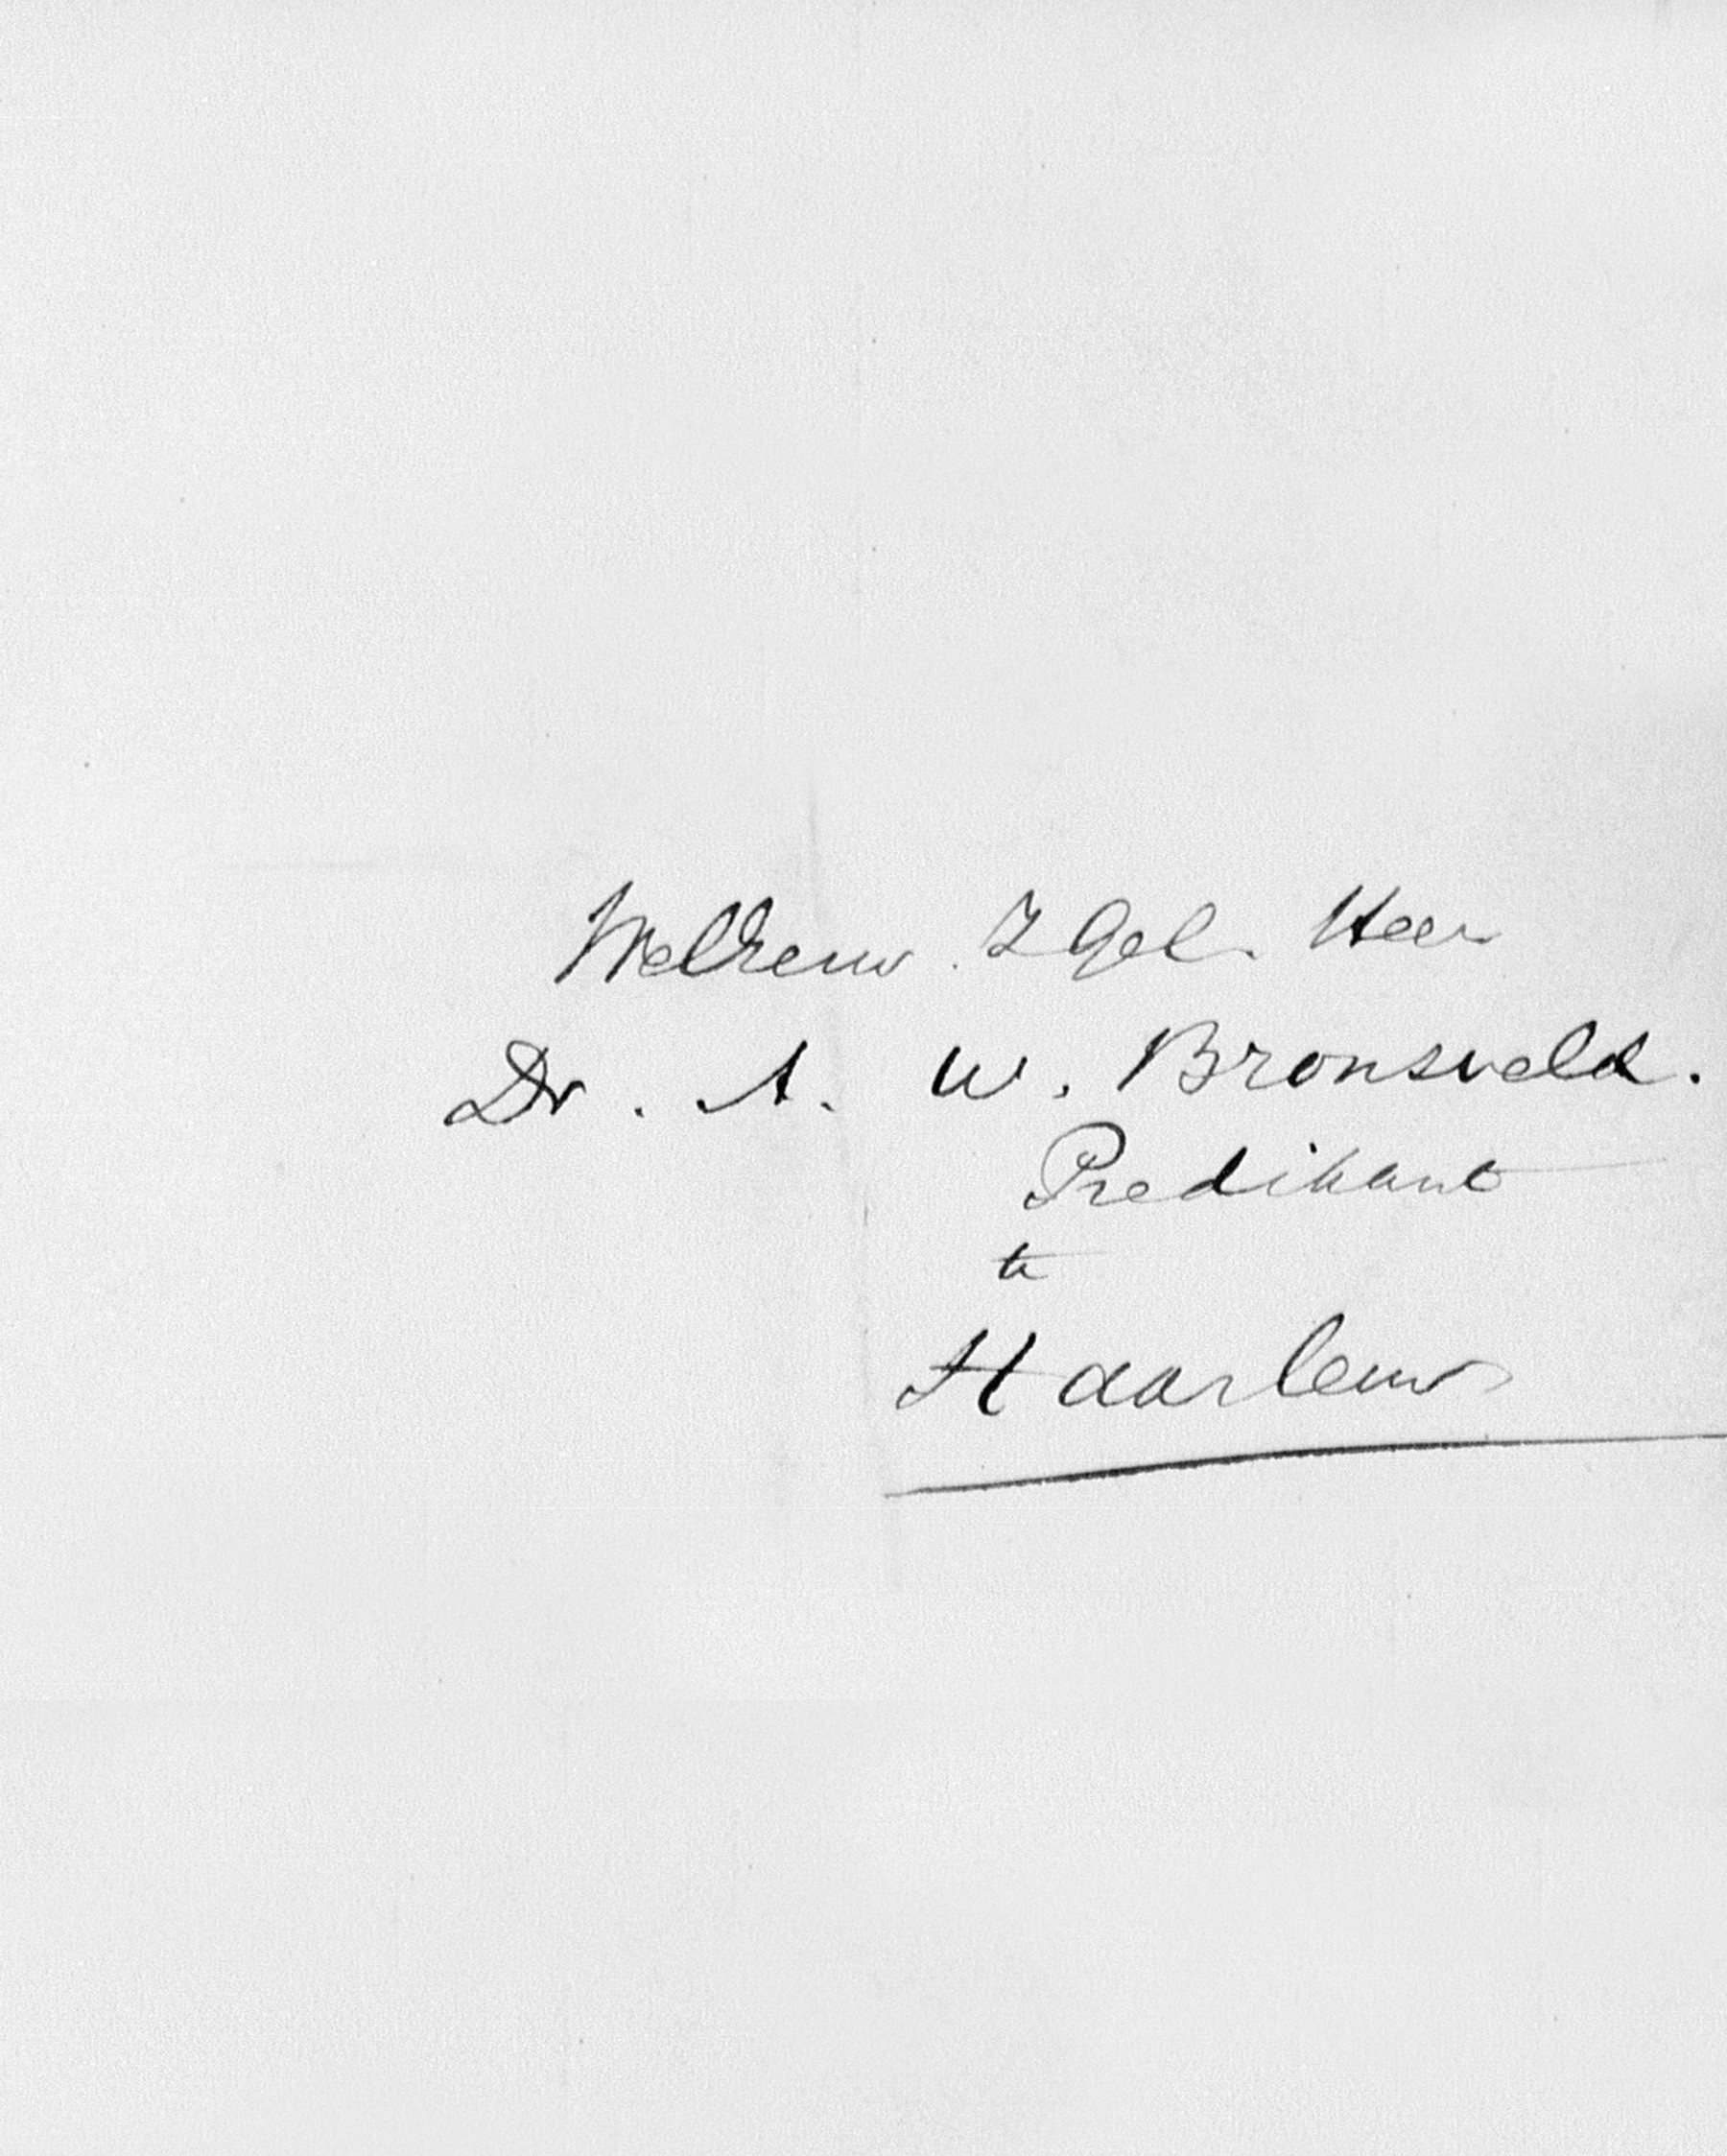 WelEerw. ZGel. Heer
Dr. A. W. Bronsveld.
Predikant
te
Haarlem